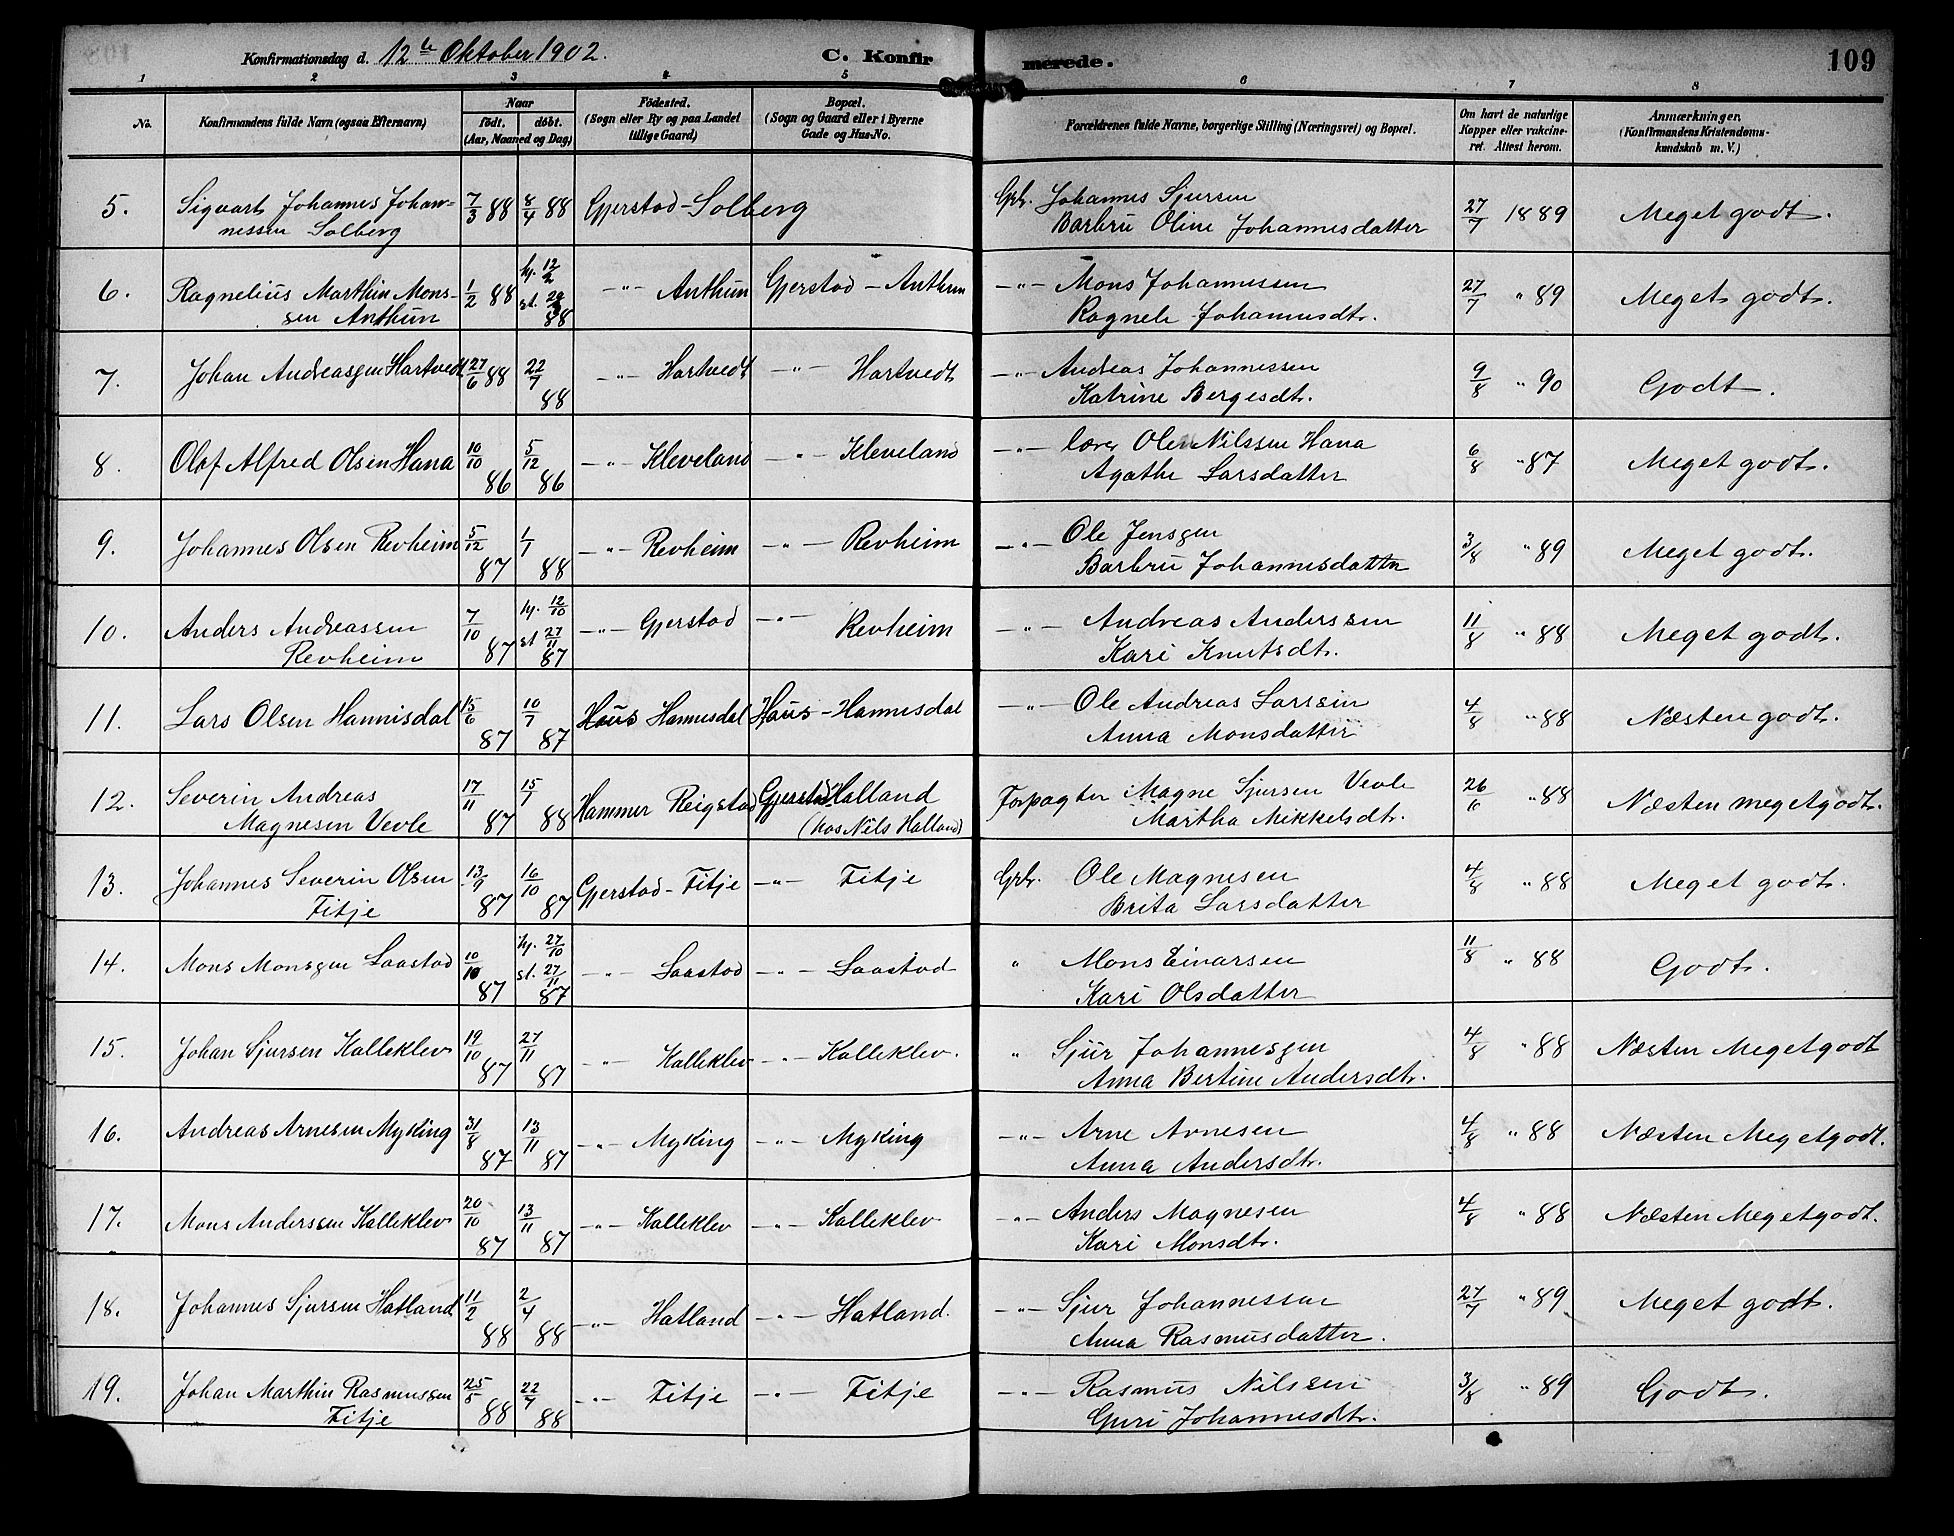 Konfirmationsdag d. 12te Oktober 1902. C. Konfir merede. 109
1 2 3 4 5 6 7 8
No. Konfirmandens fulde Navn (ogsaa Efternavn) Naar födt. döbt. (Aar, Maaned og Dag) Födested. (Sogn eller By og paa Landet tillige Gaard) Bopæl. (Sogn og Gaard eller i Byerne Gade og Hus-No. Forældrenes fulde Navne, borgerlige Stilling (Næringsvei) og Bopæl. Om havt de naturlige Kopper eller vakcineret. Attest herom. Anmærkninger. (Konfirmandens Kristendomskundskab m. V.)
5. Sigvart Johannes Johan- 7/3 88 8/4 88 Gjerstad - Solberg Gbr. Johannes Sjursen 27/7 1889 Meget godt.
nessen Solberg Barbru Oline Johannesdatter
6. Ragnelius Marthin Mons- 1/2 88 hj. 12/2 -"- Anthun Gjerstad - Anthun -"- Mons Johannessen 27/7 " 89 Meget godt.
sen Anthun st. 88 Ragnele Johannesdtr.
7. Johan Andreassen Hartvedt 27/6 88 22/7 -"- Hartvedt -"- Hartvedt -"- Andreas Johannessen 9/8 " 90 Godt.
88 Katrine Bergesdtr.
8. Olaf Alfred Olsen Hana 10/10 5/12 -"- Kleveland -"- Kleveland -"- lærer Ole Nilssen Hana 6/8 " 87 Meget godt.
86 86 Agathe Larsdatter
9. Johannes Olsen Revheim 5/12 1/1 -"- Revheim -"- Revheim -"- Ole Jensen 3/8 " 89 Meget godt.
87 88 Barbru Johannesdatter
10. Anders Andreassen 7/10 hj. 12/10 -"- Gjerstad -"- Revheim -"- Andreas Anderssen 11/8 " 88 Meget godt.
Revheim 87 st. 27/11 87 Kari Knutsdtr.
11. Lars Olsen Hannisdal 15/6 10/7 Haus Hannisdal Haus - Hannisdal -"- Ole Andreas Larssen 4/8 " 88 Næsten godt.
87 87 Anna Monsdatter
12. Severin Andreas 17/11 15/1 Hammer Reigstad Gjerstad Halland Forpagter Magne Sjursen Vevle 26/6 " 88 Næsten meget godt.
Magnesen Vevle 87 88 (hos Nils Halland) Martha Mikkelsdtr.
13. Johannes Severin Olsen 13/9 16/10 Gjerstad - Fitje -"- Fitje Gbr. Ole Magnesen 4/8 " 88 Meget godt.
Fitje 87 87 Brita Larsdatter
14. Mons Monssen Laastad 10/10 hj. 27/10 -"- Laastad -"- Laastad " Mons Einarsen 11/8 " 88 Godt.
87 st. 27/11 87 Kari Olsdatter
15. Johan Sjursen Kalleklev 19/10 27/11 -"- Kalleklev -"- Kalleklev. " Sjur Johannessen 4/8 " 88 Næsten Meget godt
87 87 Anna Bertine Andersdtr.
16. Andreas Arnesen Myking 31/8 13/11 -"- Myking -"- Myking -"- Arne Arnesen 4/8 " 88 Næsten Meget godt.
87 87 Anna Andersdtr.
17. Mons Anderssen Kalleklev 20/10 13/11 -"- Kalleklev -"- Kalleklev -"- Anders Magnesen 4/8 " 88 Næsten Meget godt.
87 87 Kari Monsdtr.
18. Johannes Sjursen Hatland 11/2 2/4 -"- Hatland -"- Hatland. -"- Sjur Johannessen 27/7 " 89 Meget godt.
88 88 Anna Rasmusdatter.
19. Johan Marthin Rasmussen 25/5 22/7 -"- Fitje -"- Fitje -"- Rasmus Nilssen 3/8 " 89 Godt.
Fitje 88 88 Guri Johannesdtr.